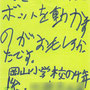 ボットを動かす
のがおもしろか
たです。
岡山小学校の4年